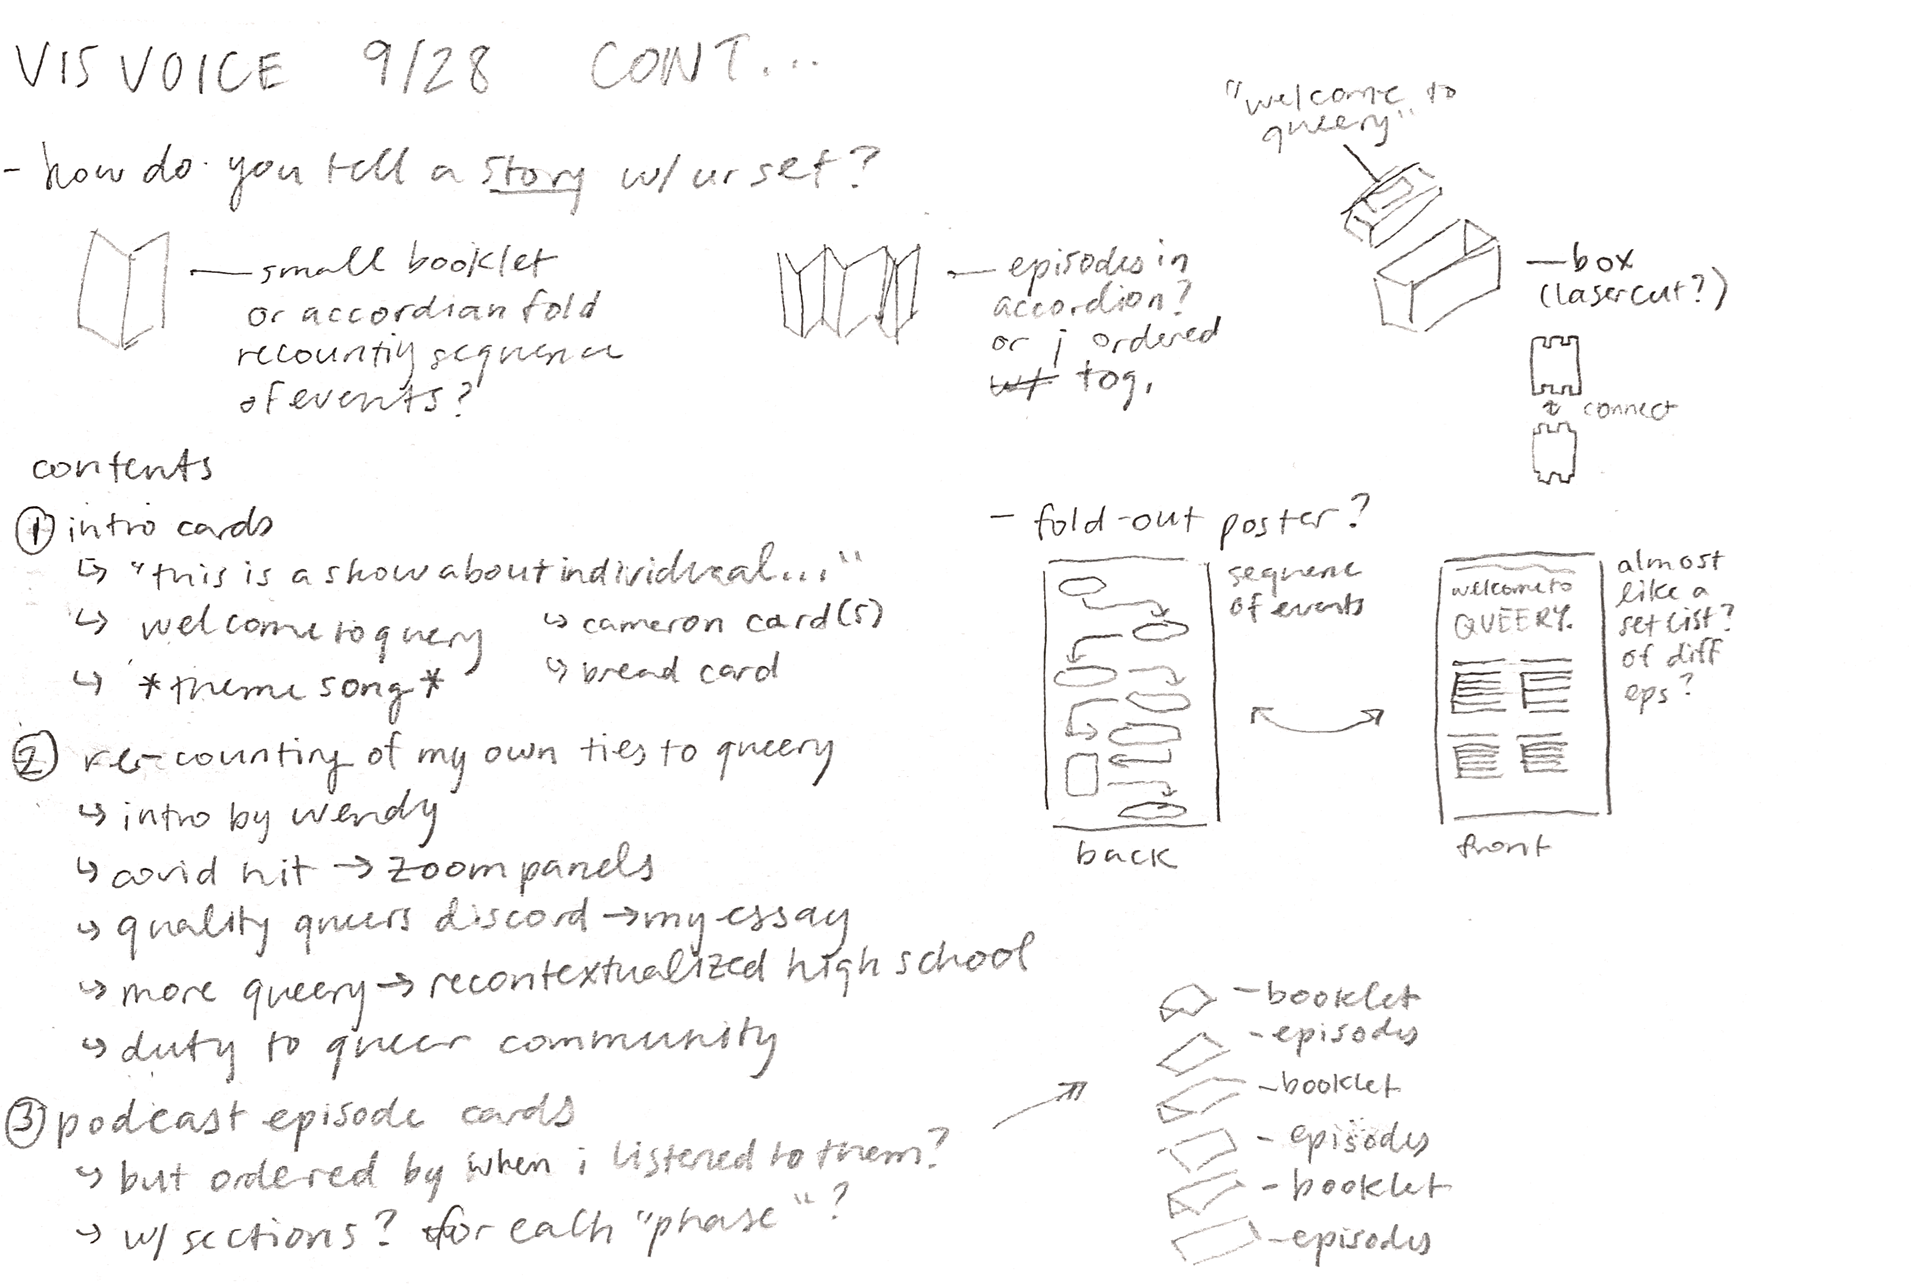 VIS VOICE 9/28 CONT...
- how do you tell a story w/ ur set?
— small booklet
or accordian fold
recounting sequence
of events?
— episodes in
accordion?
or j ordered
w/ tog.
"welcome to
queery"
— box
(lasercut?)
connect
contents
① intro cards
↳ "this is a show about individual..."
↳ welcome to query
↳ *theme song*
↳ cameron card(s)
↳ bread card
② re-counting of my own ties to queery
↳ intro by wendy
↳ covid hit → zoom panels
↳ quality queers discord → my essay
↳ more queery → recontextualized high school
↳ duty to queer community
③ podcast episode cards
↳ but ordered by when i listened to them?
↳ w/ sections? for each "phase"?
- fold-out poster?
sequence
of events
back
welcome to
QUEERY.
almost
like a
set list?
of diff
eps?
front
- booklet
- episodes
- booklet
- episodes
- booklet
- episodes